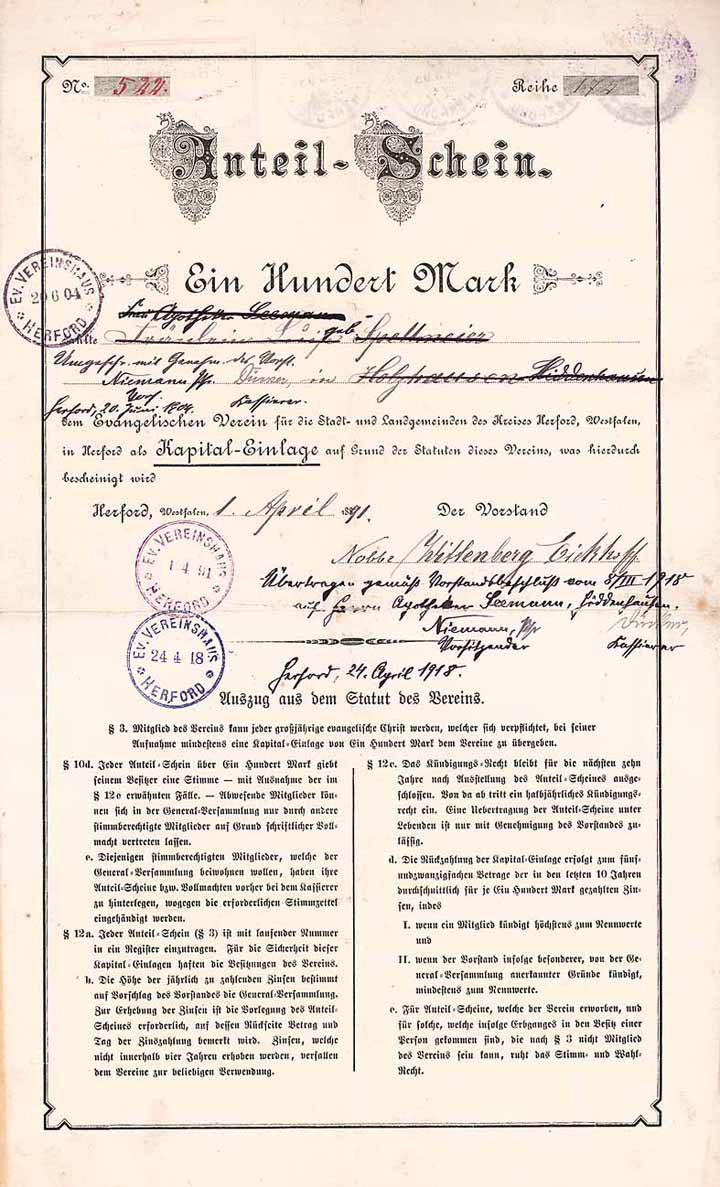 No. 522.
Reihe 174
Anteil-Schein.
Ein Hundert Mark
EV. VEREINSHAUS HERFORD
20 6 04
Frau Apotheker Seemann
Fräulein Luise geb. Spellmeier
Umgeschr. mit Genehm. des Vorst.
Niemann Pfr. Dürker, in Holzhausen Hiddenhausen
Vors. Kassierer.
Herford, 20. Juni 1904.
dem Evangelischen Verein für die Stadt- und Landgemeinden des Kreises Herford, Westfalen,
in Herford als Kapital-Einlage auf Grund der Statuten dieses Vereins, was hierdurch
bescheinigt wird
Herford, Westfalen, 1. April 1891. Der Vorstand
EV. VEREINSHAUS HERFORD
1 4 91
Nolde Wittenberg Eickhoff
Übertragen gemäß Vorstandsbeschluß vom 8/III 1918
auf Herrn Apotheker Seemann, Hiddenhausen.
Niemann, Pfr
Vorsitzender Kassierer
EV. VEREINSHAUS HERFORD
24 4 18
Herford, 24. April 1918.
Auszug aus dem Statut des Vereins.
§ 3. Mitglied des Vereins kann jeder großjährige evangelische Christ werden, welcher sich verpflichtet, bei seiner
Aufnahme mindestens eine Kapital-Einlage von Ein Hundert Mark dem Vereine zu übergeben.
§ 10d. Jeder Anteil-Schein über Ein Hundert Mark giebt
seinem Besitzer eine Stimme — mit Ausnahme der im
§ 12e erwähnten Fälle. — Abwesende Mitglieder kön-
nen sich in der General-Versammlung nur durch andere
stimmberechtigte Mitglieder auf Grund schriftlicher Voll-
macht vertreten lassen.
e. Diejenigen stimmberechtigten Mitglieder, welche der
General-Versammlung beiwohnen wollen, haben ihre
Anteil-Scheine bzw. Vollmachten vorher bei dem Kassierer
zu hinterlegen, wogegen die erforderlichen Stimmzettel
eingehändigt werden.
§ 12a. Jeder Anteil-Schein (§ 3) ist mit laufender Nummer
in ein Register einzutragen. Für die Sicherheit dieser
Kapital-Einlagen haften die Besitzungen des Vereins.
b. Die Höhe der jährlich zu zahlenden Zinsen bestimmt
auf Vorschlag des Vorstandes die General-Versammlung.
Zur Erhebung der Zinsen ist die Vorlegung des Anteil-
Scheines erforderlich, auf dessen Rückseite Betrag und
Tag der Zinszahlung bemerkt wird. Zinsen, welche
nicht innerhalb vier Jahren erhoben werden, verfallen
dem Vereine zur beliebigen Verwendung.
§ 12c. Das Kündigungs-Recht bleibt für die nächsten zehn
Jahre nach Ausstellung des Anteil-Scheines ausge-
schlossen. Von da ab tritt ein halbjährliches Kündigungs-
recht ein. Eine Uebertragung der Anteil-Scheine unter
Lebenden ist nur mit Genehmigung des Vorstandes zu-
lässig.
d. Die Rückzahlung der Kapital-Einlage erfolgt zum fünf-
undzwanzigfachen Betrage der in den letzten 10 Jahren
durchschnittlich für je Ein Hundert Mark gezahlten Zin-
sen, indes
I. wenn ein Mitglied kündigt höchstens zum Nennwerte
und
II. wenn der Vorstand infolge besonderer, von der Ge-
neral-Versammlung anerkannter Gründe kündigt,
mindestens zum Nennwerte.
e. Für Anteil-Scheine, welche der Verein erworben, und
für solche, welche infolge Erbganges in den Besitz einer
Person gekommen sind, die nach § 3 nicht Mitglied
des Vereins sein kann, ruht das Stimm- und Wahl-
Recht.